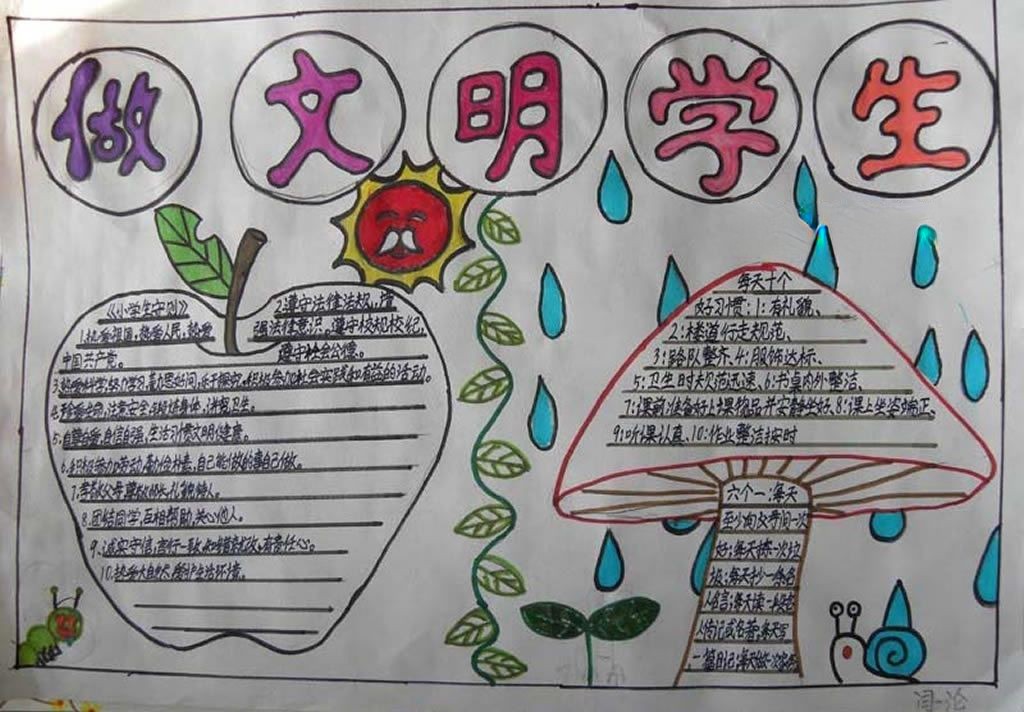 做文明学生
《小学生守则》
1.热爱祖国,热爱人民,热爱
中国共产党。
2.遵守法律法规,增
强法律意识。遵守校规校纪,
遵守社会公德。
3.热爱科学,努力学习,勤思好问,乐于探究,积极参加社会实践和有益的活动。
4.珍爱生命,注意安全,锻炼身体,讲究卫生。
5.自尊自爱,自信自强,生活习惯文明健康。
6.积极参加劳动,勤俭朴素,自己能做的事自己做。
7.孝敬父母,尊敬师长,礼貌待人。
8.团结同学,互相帮助,关心他人。
9.诚实守信,言行一致,知错就改,有责任心。
10.热爱大自然,爱护生活环境。
每天十个
好习惯:1:有礼貌、
2:楼道行走规范、
3:路队整齐、4:服饰达标、
5:卫生时大见范迅速、6:书桌内外整洁、
7:课前准备好上课物品并安静坐好、8:课上坐姿端正、
9:听课认真、10:作业整洁按时
六个一:每天
至少向父母问一次
好;每天捡一次垃
圾;每天抄一条名
人名言;每天读一段名
人传记或名著;每天写
一篇日记;每天做一次家务